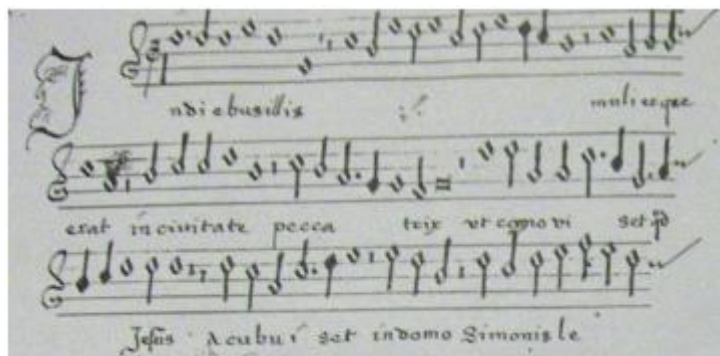 In diebus illis ij mulier que
erat in ciuitate pecca trix vt cognovi set qd
Jesus accubui set in domo Simonis le